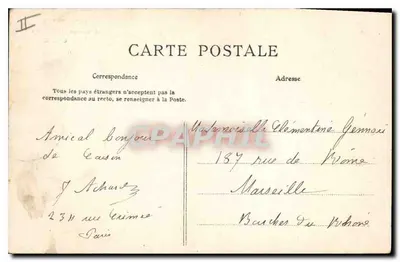 II
CARTE POSTALE
Correspondance
Adresse
Tous les pays étrangers n'acceptent pas la
correspondance au recto, se renseigner à la Poste.
Amical bonjour
de
J Achard
23 rue Crimée
Paris
Mademoiselle Clémentine
187 rue de Rome
Marseille
Bouches du Rhône
CPAPHIL